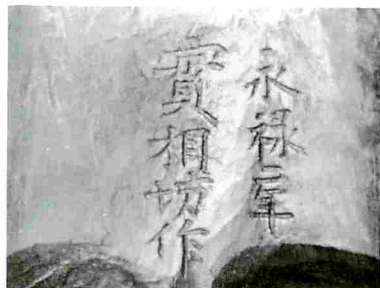 永禄二年
實相坊作